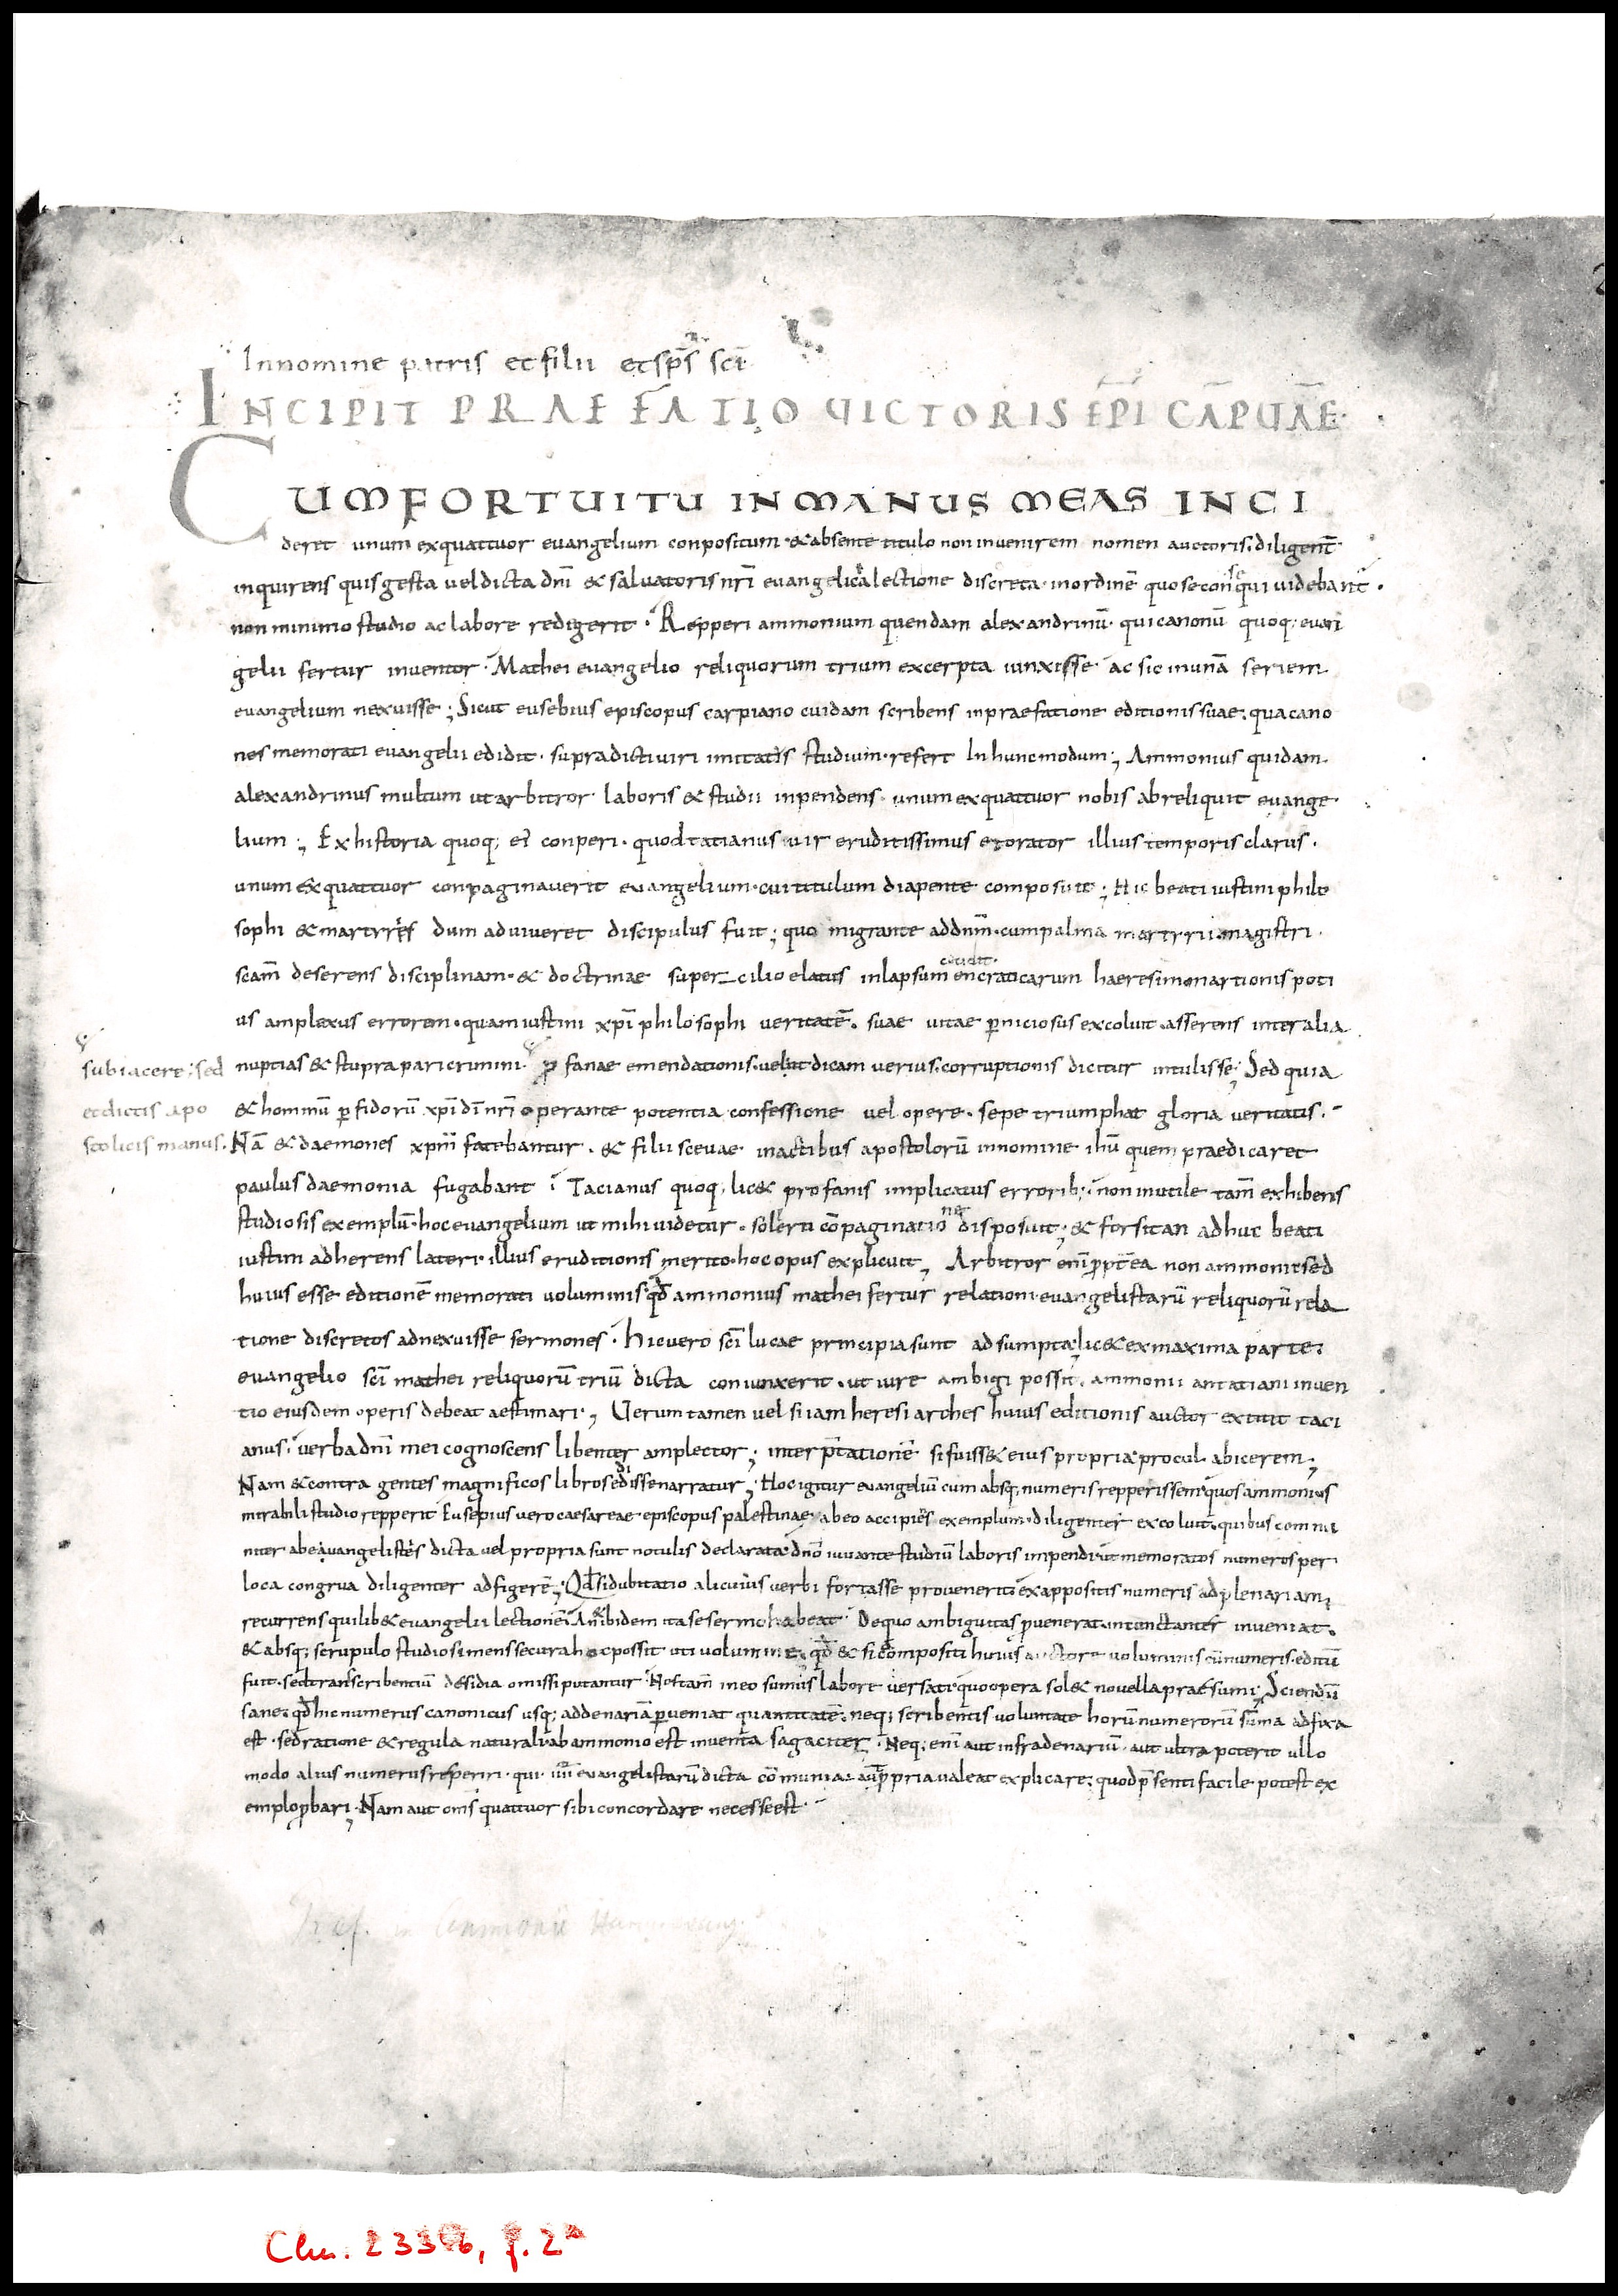 Innomine patris et filii et sp̄s sc̄i
INCIPIT PRAEFATIO VICTORIS EP̄I CAPUAE
CUMFORTUITU IN MANUS MEAS INCI
deret unum exquattuor evangelium conpositum · & absente titulo non invenirem nomen auctoris; diligent̄
inquirens quis gesta vel dicta dn̄i & salvatoris nr̄i evangelica lectione discreta · inordinē quo se consequi videbant̄ ·
non minimo studio ac labore redigerit · Repperi ammonium quendam alexandrinū · qui canonū quoq; evan
gelii fertur inventor · Mathei evangelio reliquorum trium excerpta iunxisse · ac sic in unā seriem
evangelium nexuisse; Sicut eusebius episcopus carpiano cuidam scribens inpraefatione editionis suae; qua cano
nes memorati evangelii edidit · supradicti viri imitatis studium · refert In hunc modum; Ammonius quidam
alexandrinus multum ut arbitror laboris & studii inpendens unum exquattuor nobis abreliquit evange
lium; Exhistoria quoq; ei conperi · quod tatianus vir eruditissimus et orator illius temporis clarus ·
unum exquattuor conpaginaverit evangelium · cui titulum diapente composuit; Hic beati iustini philo
sophi & martyris dum adviveret discipulus fuit; quo migrante ad dn̄m · cum palma martyrii · magistri ·
scam̄ deserens disciplinam · & doctrinae super cilio elatus inlapsum encraticarum haeresim martionis poti
cecidit
us amplexus errorem · quam iustini xp̄i philosophi veritatē · suae vitae p̄niciosus excoluit · asserens inter alia
subiacere; sed nuptias & stupra pari crimini · ꝓfanae emendationis · velut dicam verius · corruptionis dicitur intulisse; Sed quia
et dictis apo & hominū p̄fidorū xp̄i dī nr̄i operante potentia confessione vel opere · sepe triumphat gloria veritatis ·
stolicis manus · Nā & daemones xp̄m fatebantur · & filii scevae inactibus apostolorū innomine ihū quem praedicaret
paulus daemonia fugabant Tacianus quoq; lic& profanis implicatus errorib; non inutile tam̄ exhibens
studiosis exemplū · hoc evangelium ut mihi videtur · solerti cōpaginatione disposuit; & forsitan adhuc beati
iustini adherens lateri · illius eruditionis merito · hoc opus explicuit; Arbitror enī ꝓpterea non ammonii sed
huius esse editionē memorati voluminis · qd̄ ammonius mathei fertur relationi evangelistarū reliquorū rela
tione discretos adnexuisse sermones · hic vero sc̄i lucae principia sunt adsumpta; lic& ex maxima parte
evangelio sc̄i mathei reliquorū triū dicta coniunxerit · ut iure ambigi possit · ammonii an tatiani inven
tio eiusdem operis debeat aestimari; Verum tamen vel si iam heresi arches huius editionis auctor extitit taci
anus · verba dn̄i mei cognoscens libenter amplector; interp̄tationē si fuiss& eius propria procul abicerem;
Nam & contra gentes magnificos libros edidisse narratur; Hoc igitur evangeliū cum absq; numeris repperissem · quos ammonius
mirabili studio repperit Eusepius vero caesareae episcopus palestinae · abeo accipiēs exemplum · diligenter excoluit · quibus commu
niter abevangelistēs dicta vel propria sunt notulis declarata · dn̄o iuvante studiū laboris impendi ut memoratos numeros per
loca congrua diligenter adfigerē; Qd̄ si dubitatio alicuius verbi fortasse provenerit · exappositis numeris ad plenariam
recurrens quilib& evangelii lectionē · An ibidem ita se sermo habeat · De quo ambiguitas p̄venerat · incunctanter inveniat ·
& absq; scrupulo studiosi mens secura hoc possit uti volumine · qd̄ & si compositi huius auctore voluminis cū numeris · editū
fuit · sed transcribentiū desidia omissi putantur · Hos tam̄ meo sumus labore versati · quo opera sol& novella praesumi; Sciendū
sane · qd̄ hic numerus canonicus usq; ad denariā p̄veniat quantitatē · neq; scribentis voluntate horū numerorū sūma adfixa
est · sed ratione & regula naturali · ab ammonio est inventa sagaciter · Neq; enī aut infra denariū · aut ultra poterit ullo
modo alius numerus reperiri · qui iiii evangelistarū dicta cōmunia · aut ꝓpria valeat explicare; quod p̄senti facile potest ex
emplo ꝓbari; Nam aut om̄s quattuor sibi concordare necesse est ·
Praef. in Ammonii
Clm. 23346, f. 2ᵃ